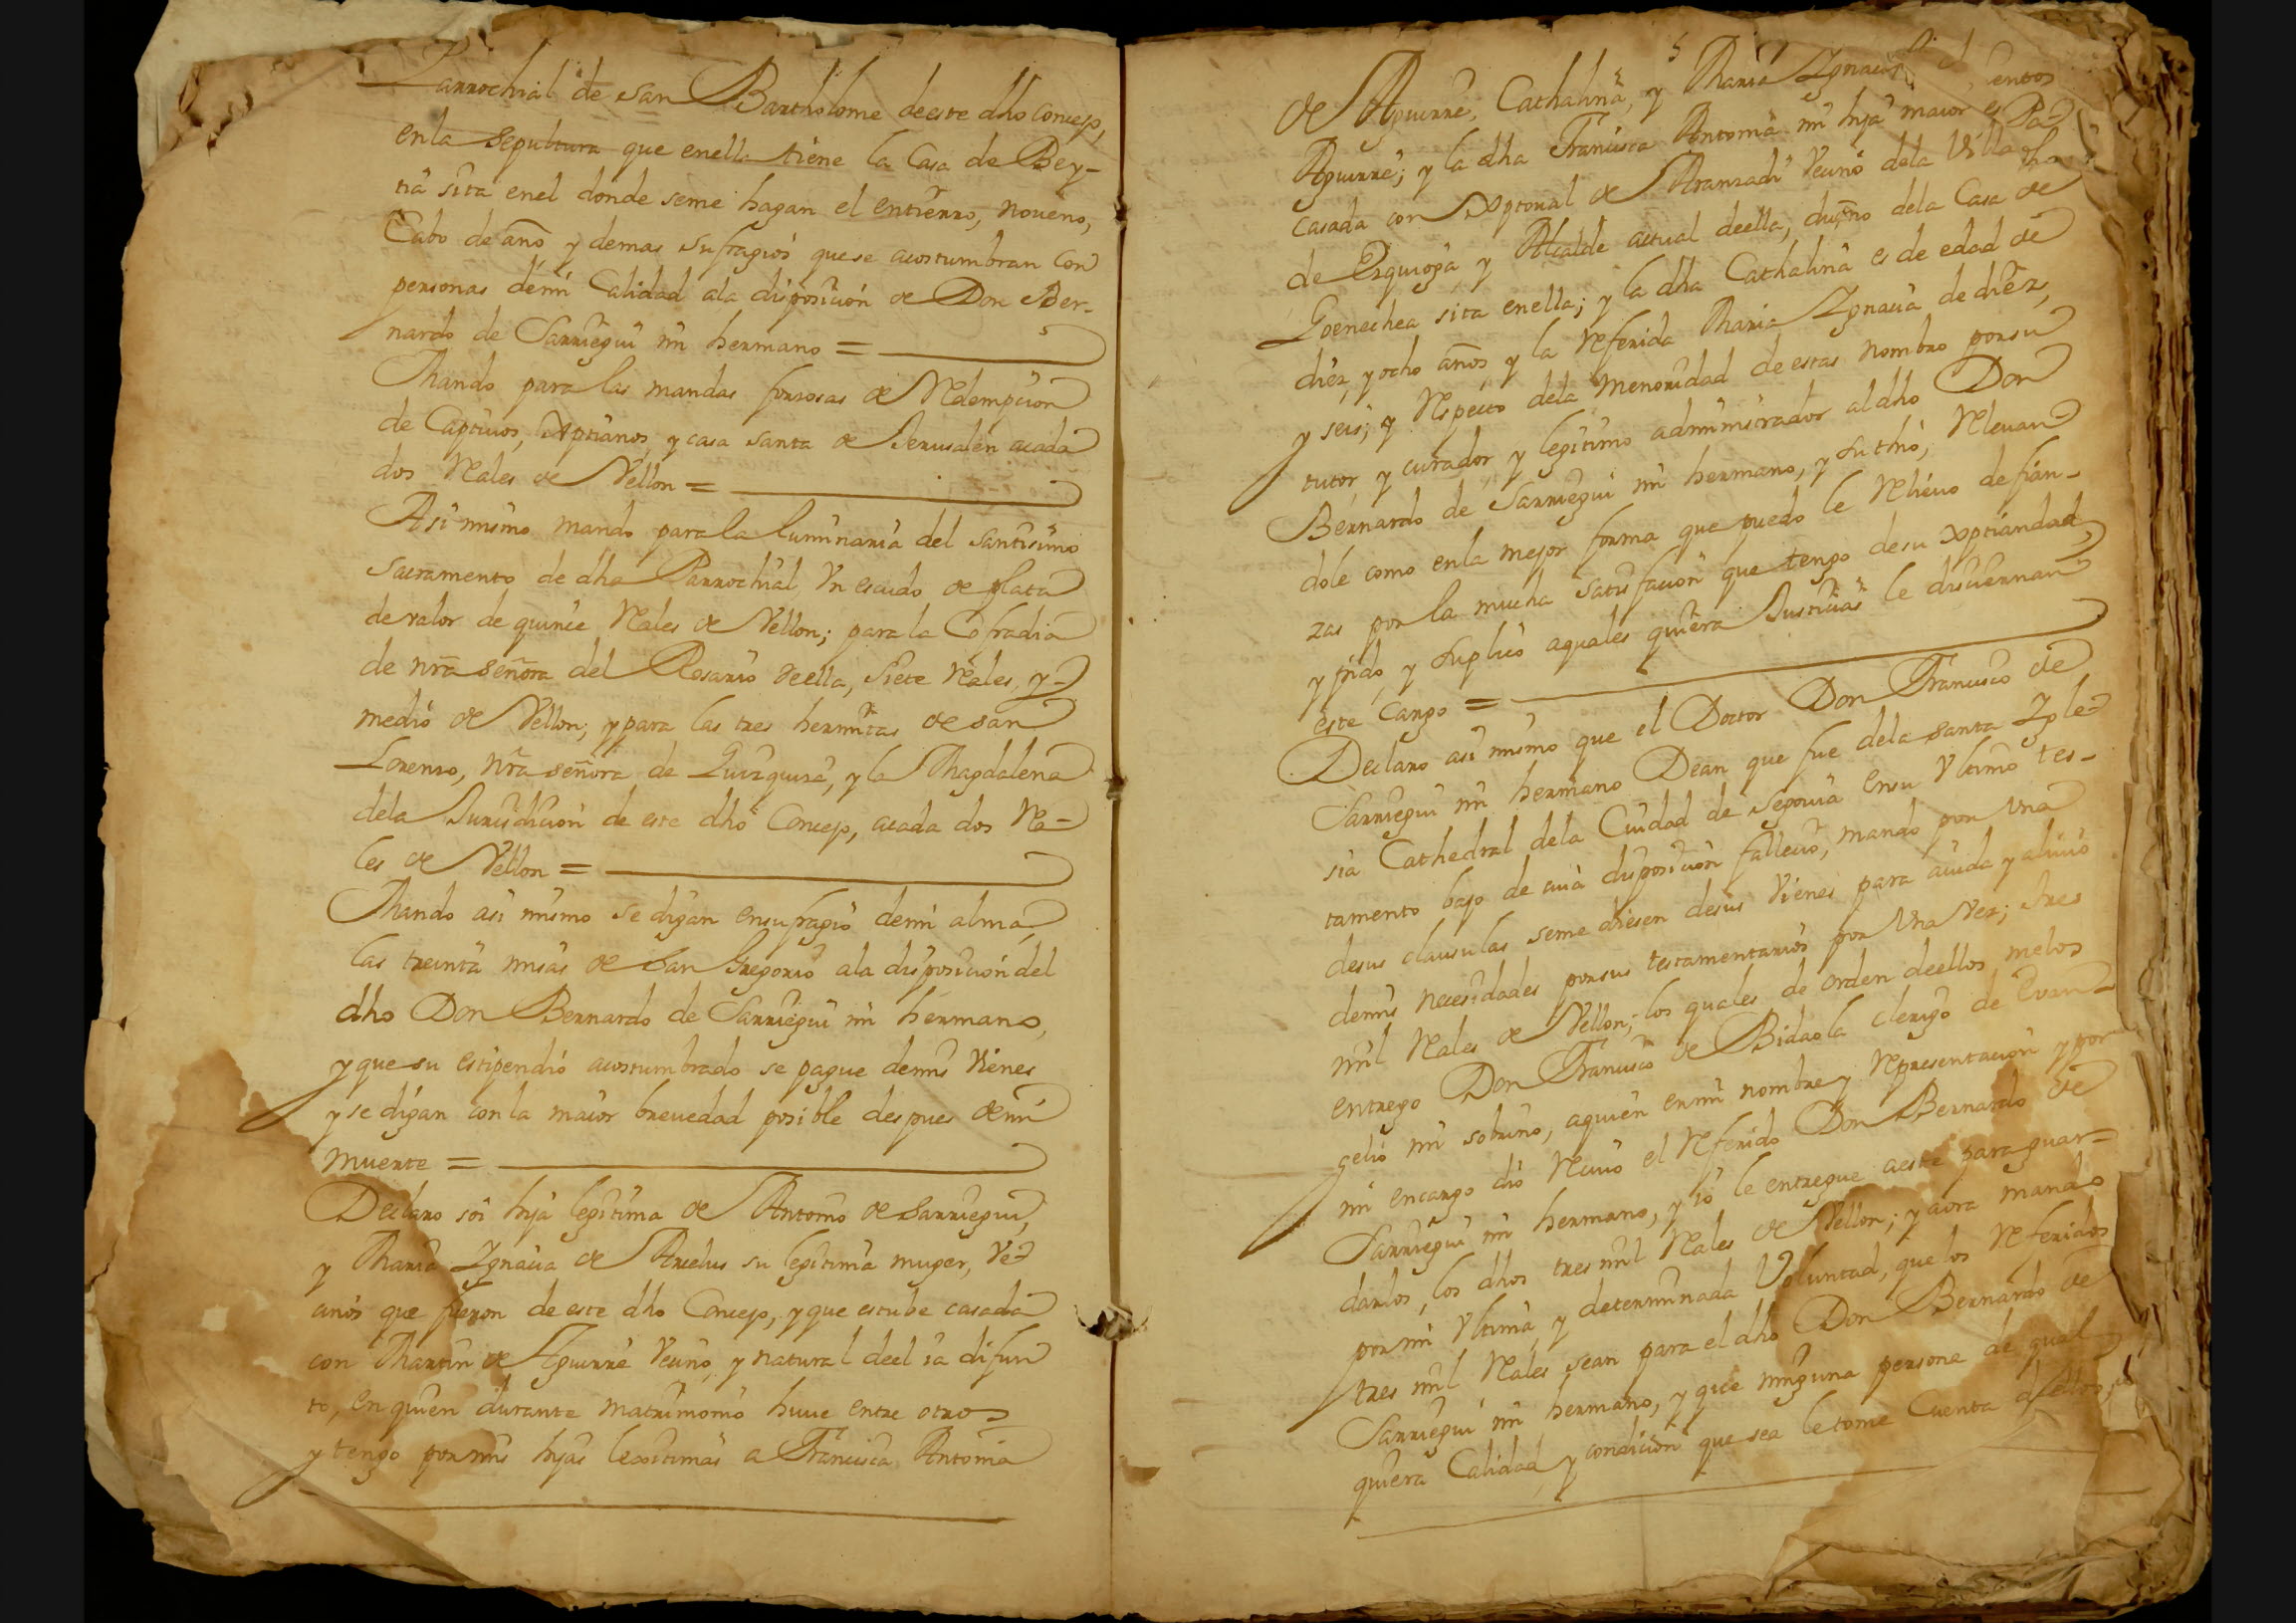 Parrochial de san Bartholome deeste dho concejo,
enla sepultura que enella tiene la Casa de Bey-
tia sita enel donde seme hagan el entierro, noueno,
Cabo de año y demas sufragios quese acostumbran con
personas demi Calidad ala disposicion de Don Ber-
nardo de Sarriegui mi hermano =
Mando para las mandas forsosas de Redempcion
de Captiuos, xptianos, y casa santa de Jerusalen acada
dos Reales de Vellon =
Asi mismo mando para la luminaria del santisimo
Sacramento de dha Parrochial Vn escudo de plata
de valor de quince Reales de Vellon; para la Cofradia
de nrã señora del Rosario deella, siete Reales, y-
medio de Vellon; y para las tres hermitas de san
Lorenso, nrã señora de Quizquiza, y la Magdalena
dela Jurisdicion de este dho Concejo, acada dos Rea-
les de Vellon =
Mando asi mismo se digan ensufragio demi alma,
las treinta misas de San Gregorio ala disposicion del
dho Don Bernardo de Sarriegui mi hermano,
y que su estipendio acostumbrado se pague demis Vienes
y se digan con la maior breuedad posible despues de mi
muerte =
Declaro soi hija legitima de Antonio de Sarriegui,
y Maria Ignacia de Arcelus su legitima muger, Ve-
cinos que fueron de este dho Concejo, y que estube casada
con Martin de Aguirre Vecino, y natural deel ia difun
to, en quien durante matrimonio huue entre otros
y tengo por mis hijas lexitimas a Francisca Antonia
de Aguirre, Cathalina, y Maria Ignacia
Aguirre; y la dha Francisca Antonia mi hija maior es
casada con Xptoual de Aranzadi Vecino dela Villa
de Ezquioga y Alcalde actual deella, dueño dela Casa de
Goenechea sita enella; y la dha Cathalina es de edad de
diez, y ocho años, y la referida Maria Ignacia de diez,
y seis; y Respecto dela menoridad de estas nombro porsu
tutor, y curador, y legitimo administrador al dho Don
Bernardo de Sarriegui mi hermano, y su thio; Releuan
dole como enla mejor forma que puedo le Relieuo de fian-
zas por la mucha satisfacion que tengo desu xptiandad,
y pido, y suplico aquales quiera Justicias le disciernan
este cargo =
Declaro asi mismo que el Doctor Don Francisco de
Sarriegui mi hermano Dean que fue dela santa Igle-
sia Cathedral dela Ciudad de Segouia ensu Vltimo tes-
tamento bajo de cuia disposicion fallecio, mando por Vna
desus clausulas seme diesen desus Vienes para aiuda y aliuio
demis necesidades porsus testamentarios por Vna Vez; tres
mil Reales de Vellon; los quales de orden deellos melos
entrego Don Francisco de Bidaola clerigo de Euan-
gelio mi sobrino, aquien enmi nombre y Representacion y por
mi encargo dio Reciuo el Referido Don Bernardo de
Sarriegui mi hermano, y io le entregue aeste para guar-
darlos, los dhos tres mil Reales de Vellon; y aora mando
por mi Vltima, y determinada Voluntad, que los Referidos
tres mil Reales sean para el dho Don Bernardo de
Sarriegui mi hermano, y que ninguna persona de qual
quiera Calidad, y condicion que sea le tome Cuenta dellos,